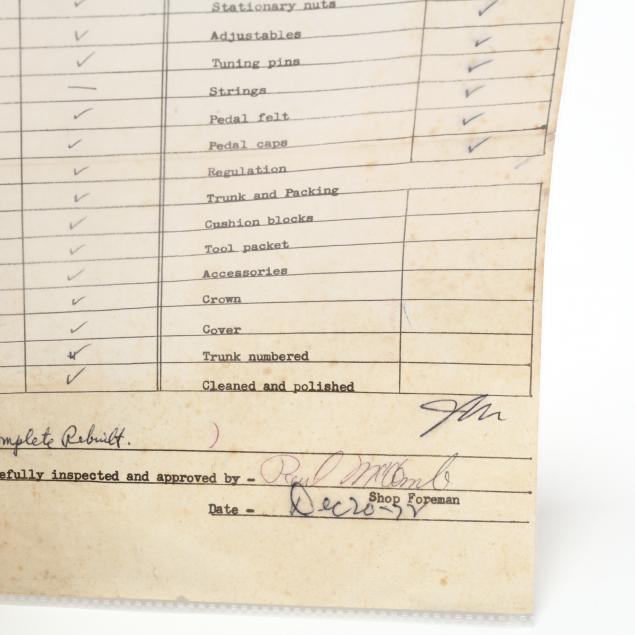 Stationary nuts
Adjustables
Tuning pins
Strings
Pedal felt
Pedal caps
Regulation
Trunk and Packing
Cushion blocks
Tool packet
Accessories
Crown
Cover
Trunk numbered
Cleaned and polished
mplete Rebuilt.
efully inspected and approved by -
Shop Foreman
Date - Dec 20-72